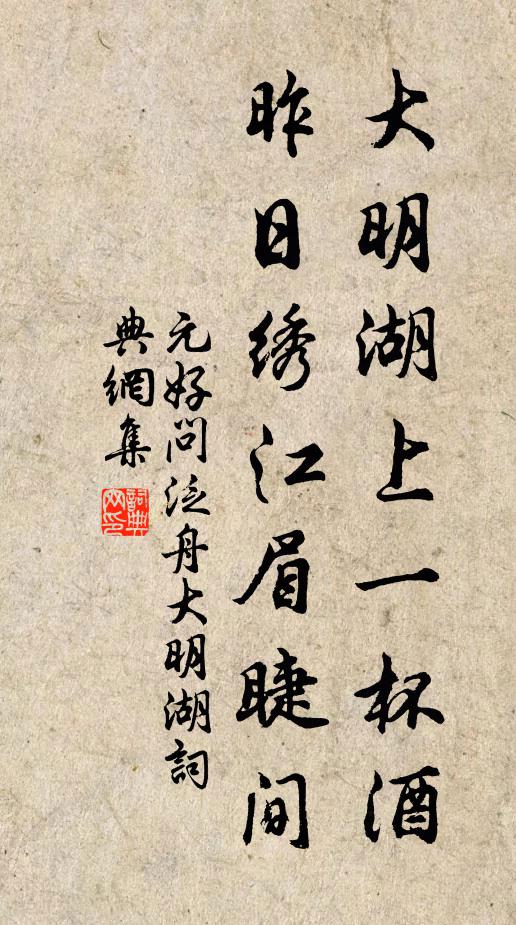 大明湖上一杯酒
昨日绣江眉睫间
元好问泛舟大明湖詞
典網集
詞典网印